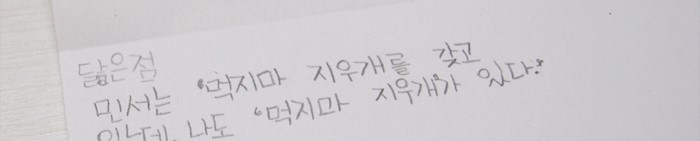 닮은점
민서는 "먹지마 지우개를 갖고
있는데, 나도 "먹지마 지우개"가 있다."